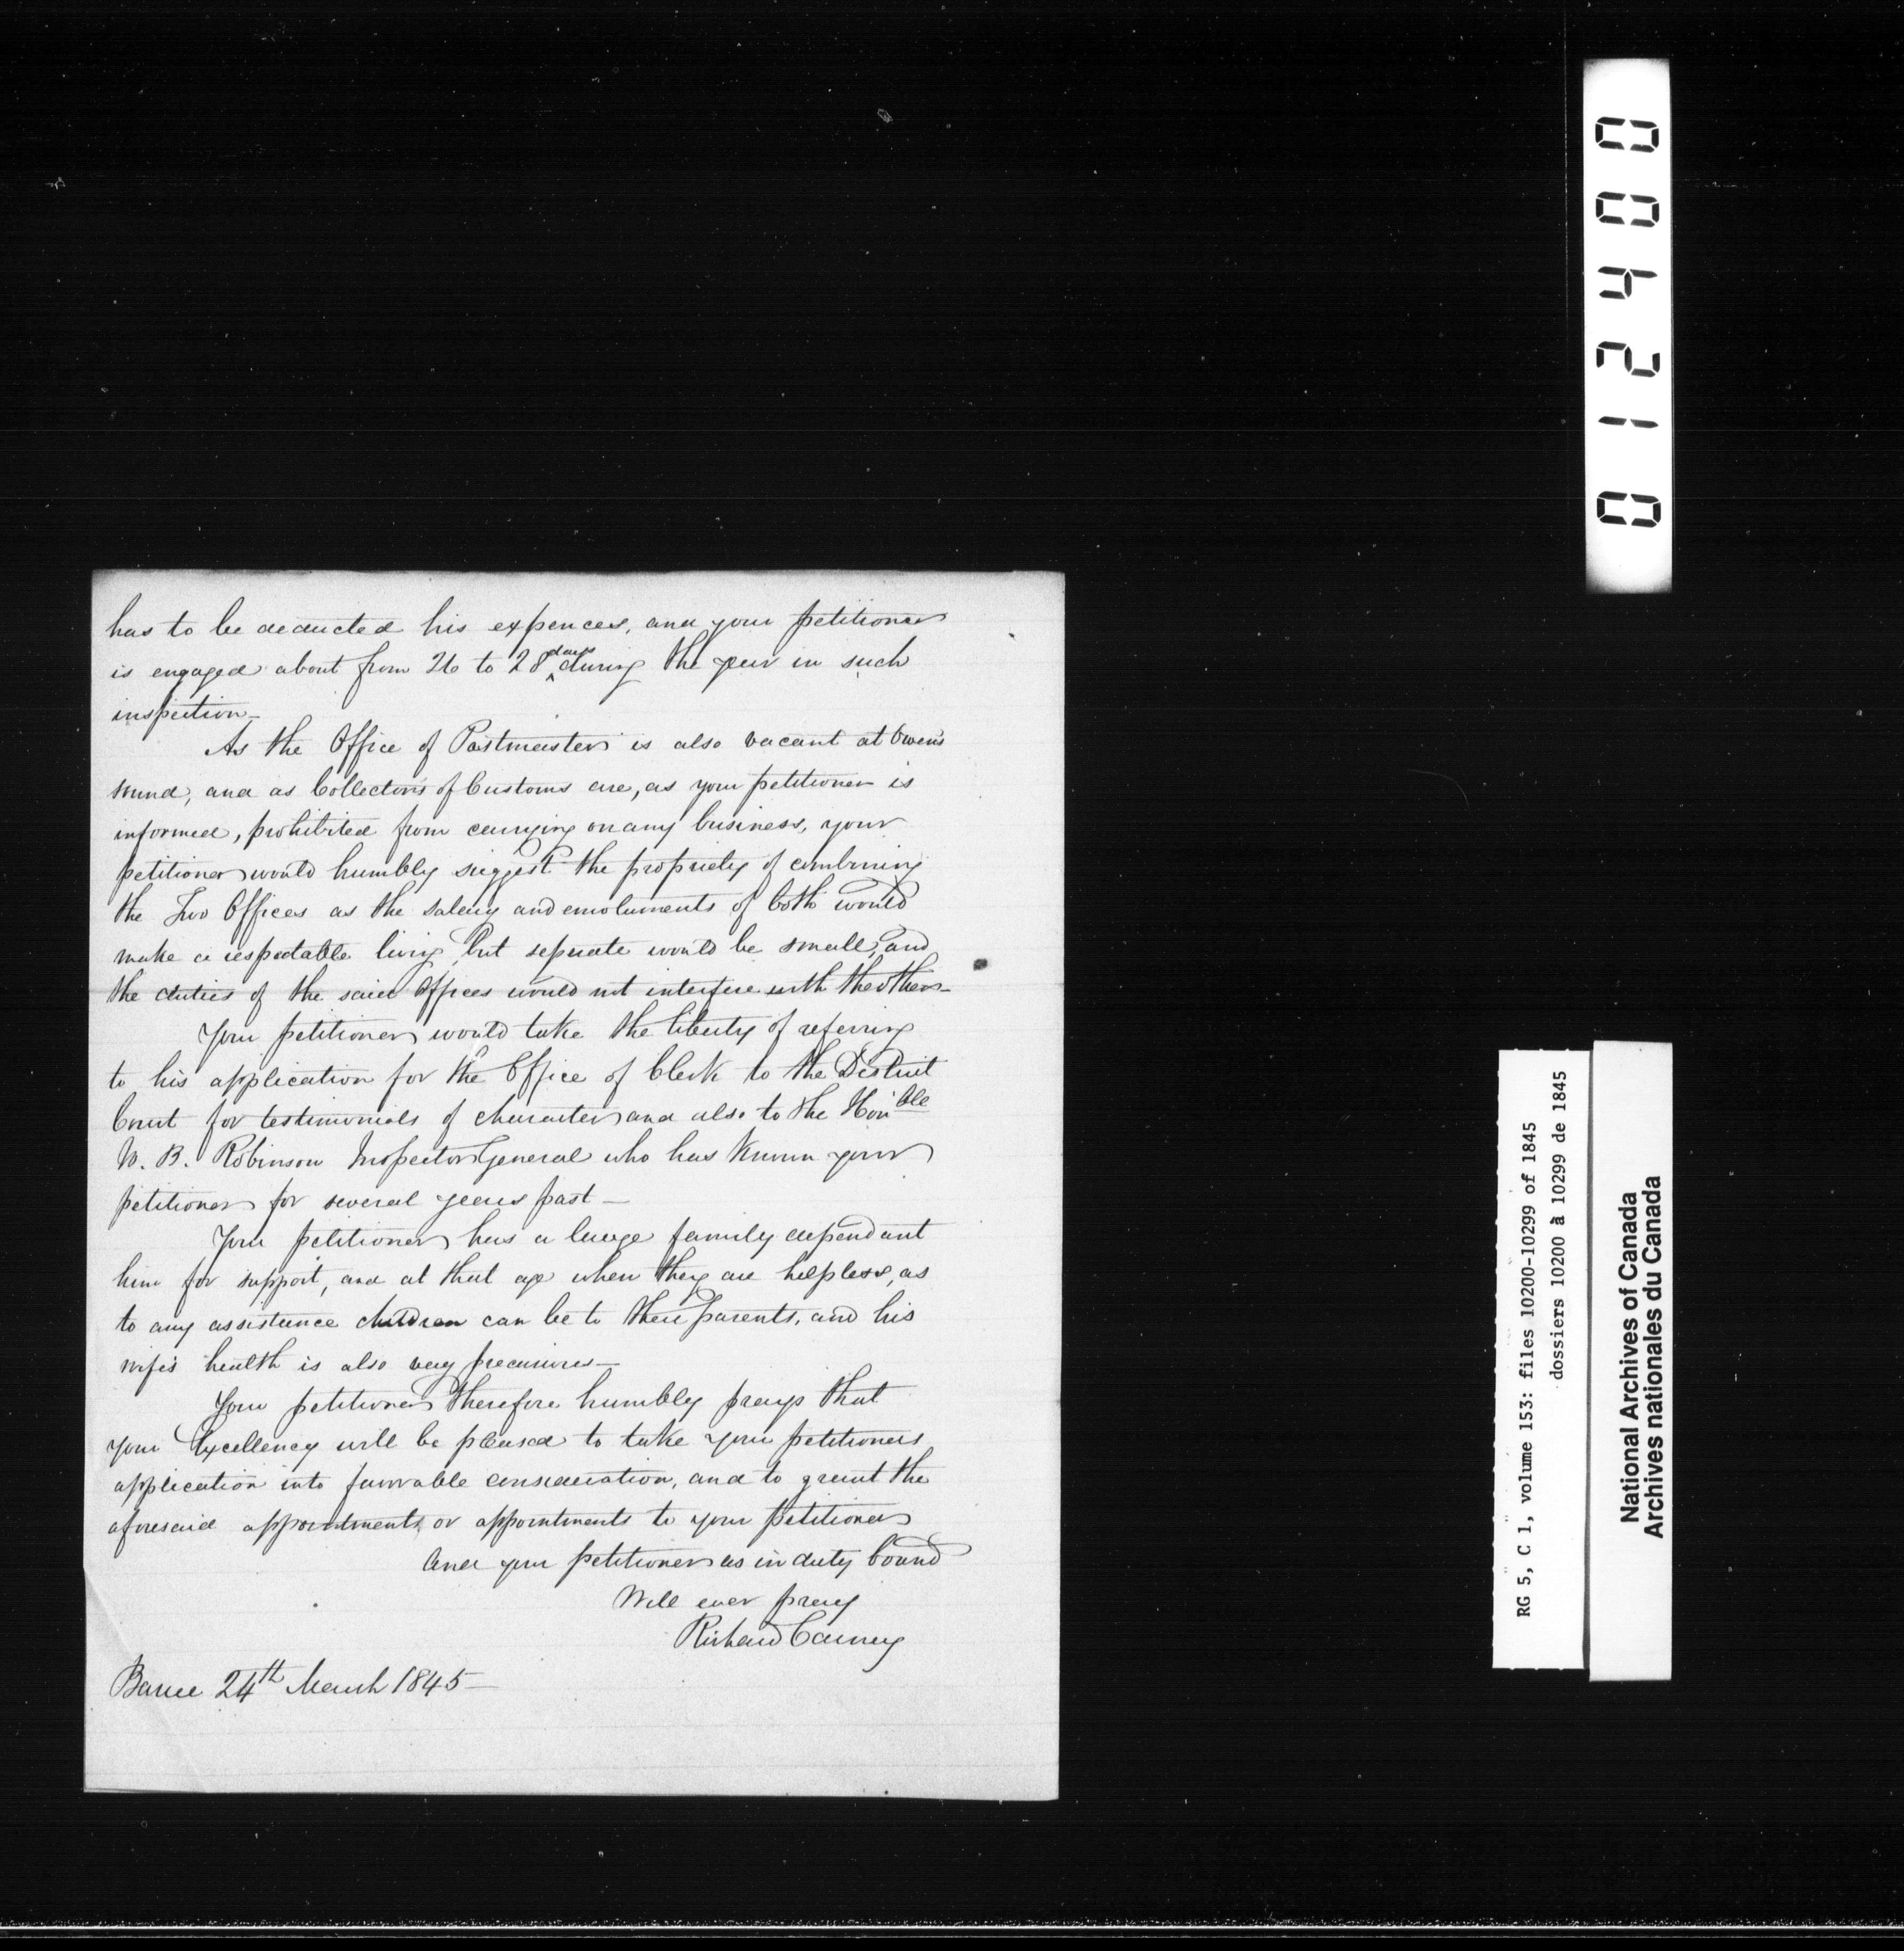 has to be deducted his expences, and your petitioner
is engaged about from 26 to 28 days during the year in such
inspection —
As the Office of Postmaster is also vacant at Owen's
sound, and as Collectors of Customs are, as your petitioner is
informed, prohibited from carrying on any business, your
petitioner would humbly suggest the propriety of combining
the Two Offices as the salary and emoluments of both would
make a respectable living, but seperate would be small, and
the duties of the said Offices would not interfere with the others —
Your petitioner would take the liberty of referring
to his application for the Office of Clerk to the District
Court for testimonials of character and also to the Hon'ble
W. B. Robinson Inspector General who has known your
petitioner for several years past —
Your petitioner has a large family dependant
him for support, and at that age when they are helpless, as
to any assistance children can be to their parents, and his
wife's health is also very precarious —
Your petitioner therefore humbly prays that
your Excellency will be pleased to take your petitioners
application into favorable consideration, and to grant the
aforesaid appointments or appointments to your petitioner
And your petitioner as in duty bound
Will ever pray
Richard Carney
Barrie 24th March 1845 —
012400
RG 5, C 1, volume 153: files 10200-10299 of 1845
dossiers 10200 à 10299 de 1845
National Archives of Canada
Archives nationales du Canada